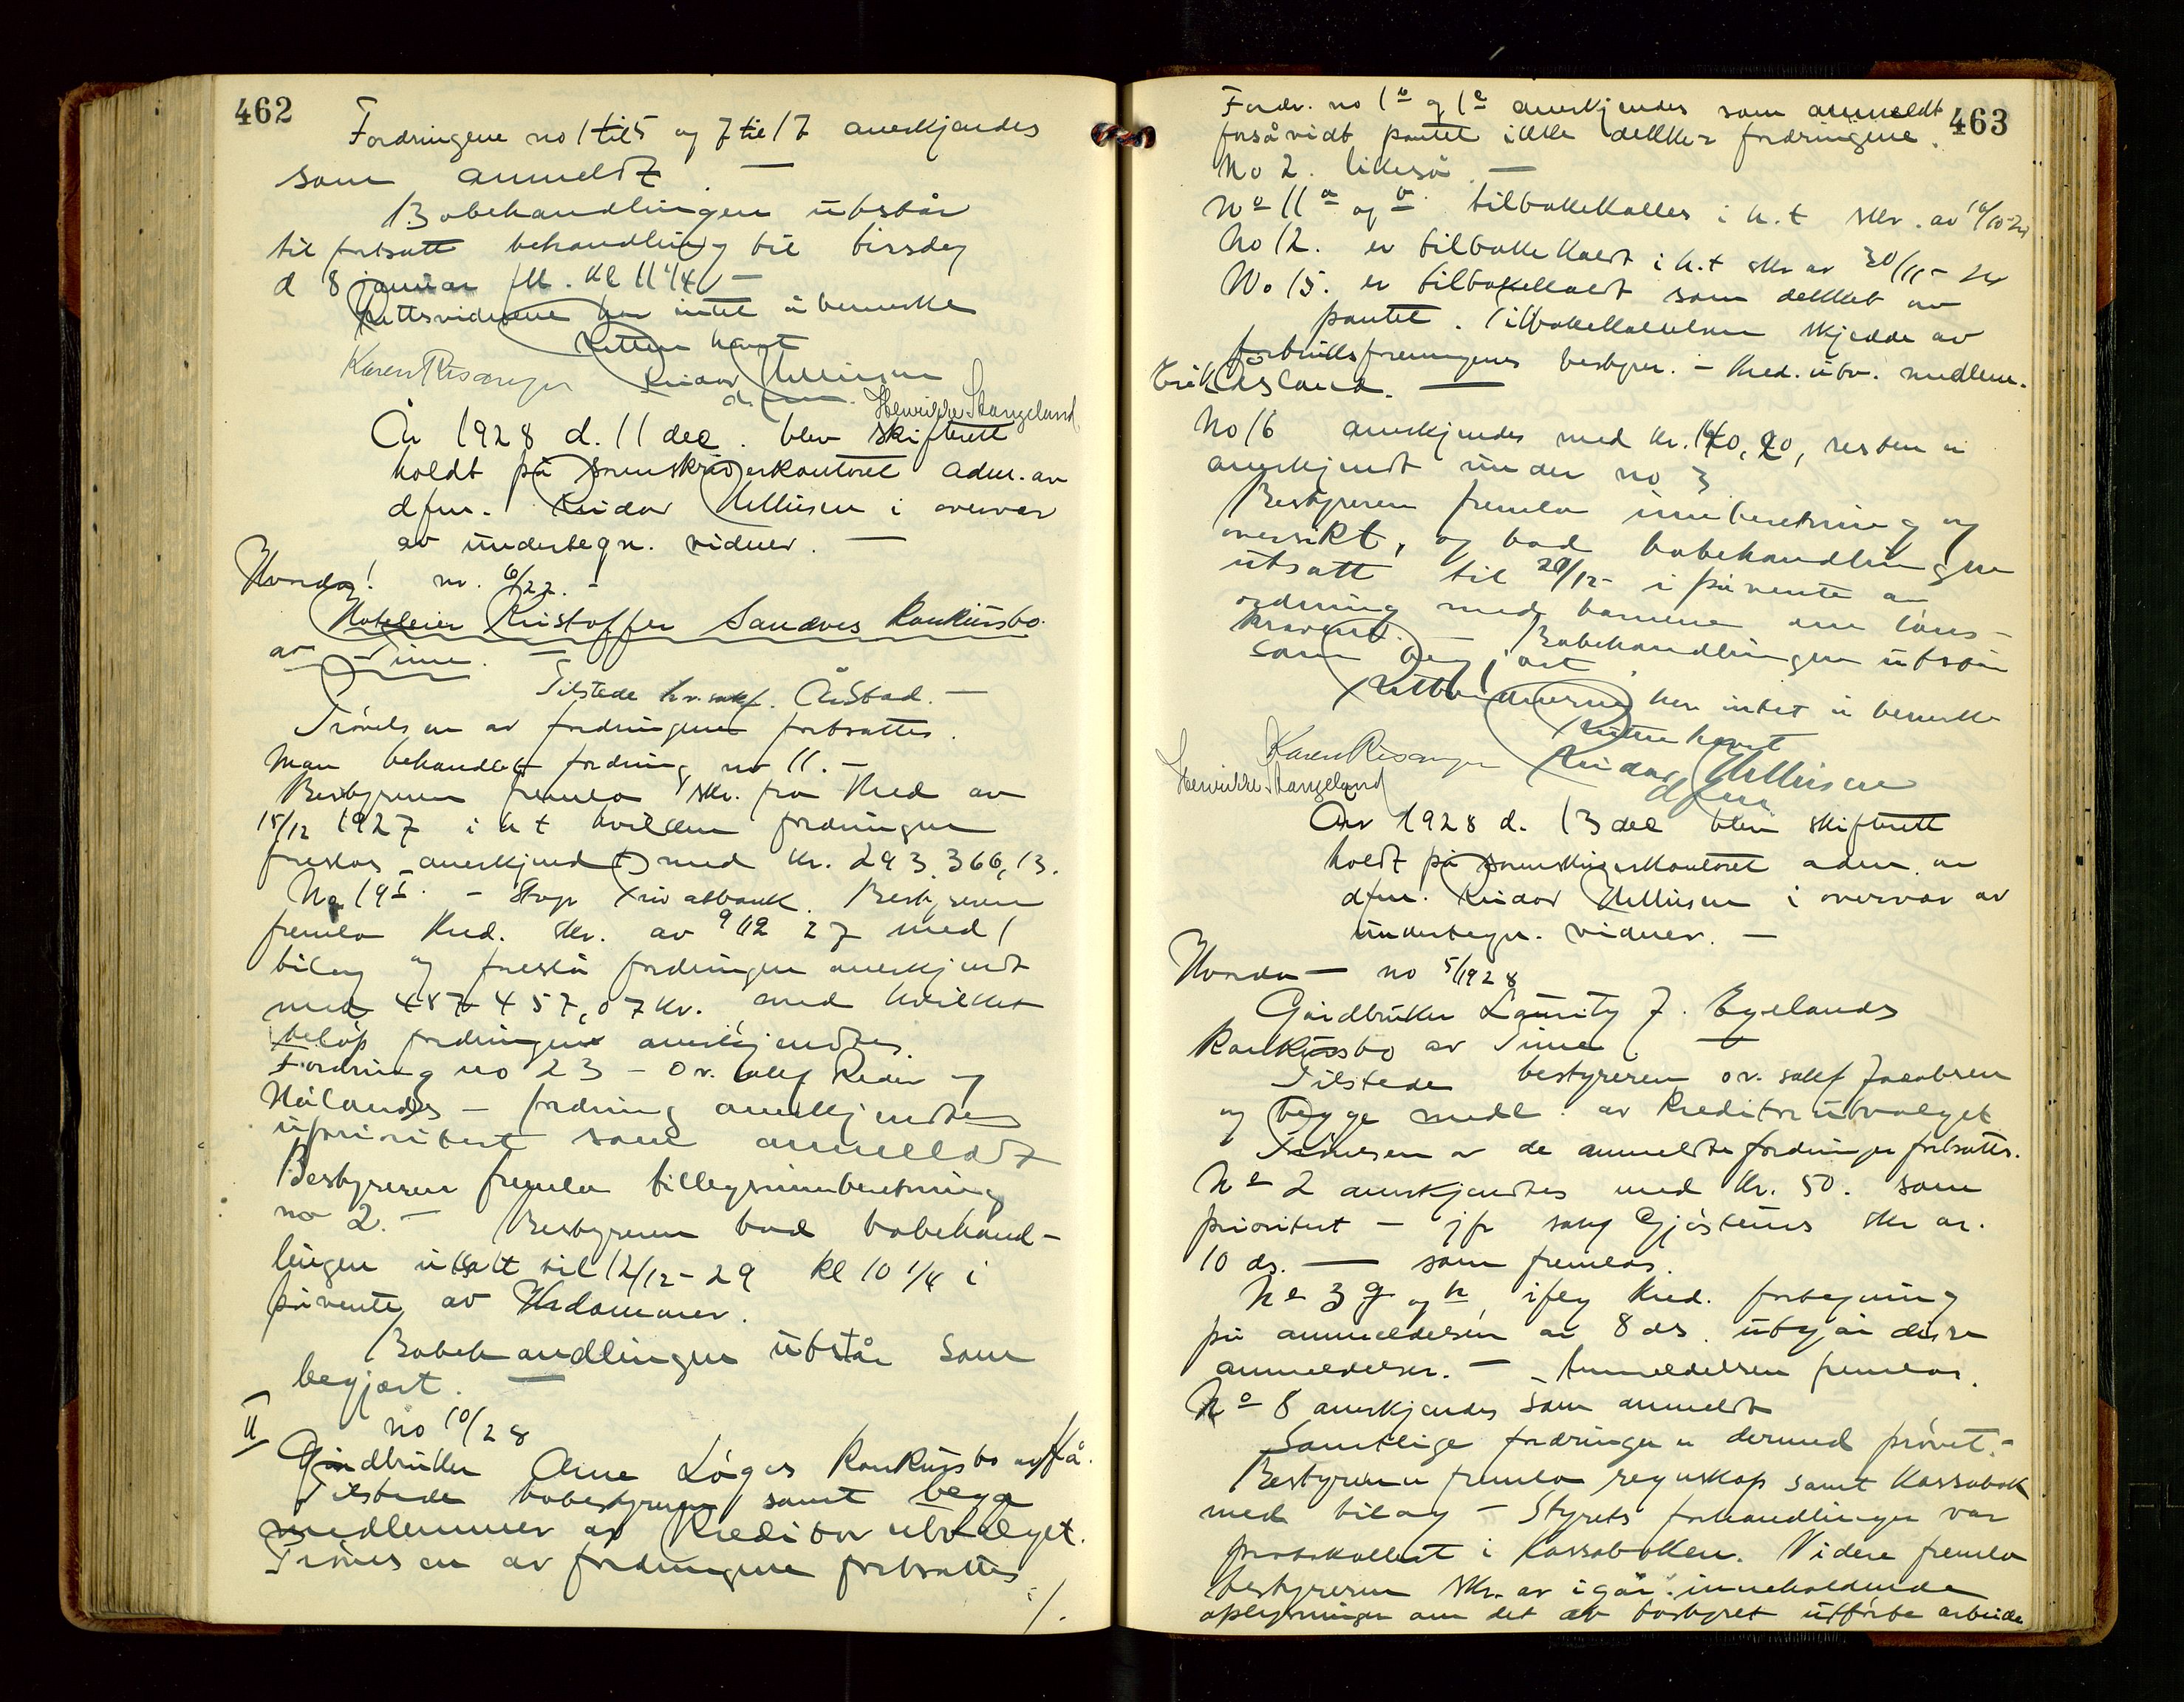 462
Fordringene no 1 til 5 og 7 til 17 anerkjendes
som anmeldt. —
Bobehandlingen utstår
til fortsatt behandling til tirsdag
d 8 januar fk. kl 11 1/4 —
Rettsvidnene har intet å bemerke
Retten hævet
Karen Risanger Reidar Mellisen
dfm. Henrikke Stangeland
År 1928 d. 11 dec. blev skifterett
holdt på sorenskriverkontoret adm. av
dfm. Reidar Mellisen i overvær
av undertegn. vidner. —
Hvorda! nr. 6/22. —
Hoteleier Kristoffer Sandves konkursbo
av Time. —
Tilstede hr. sakf. Årstad. —
Prøvelsen av fordringene fortsattes.
Man behandlet fordring no 11. —
Bestyreren fremla skr. fra Kred av
15/12 1927 i h t hvilken fordringen
foreslåes anerkjendt med kr. 293.366,13.
No 19 — Stvgr Privatbank. Bestyreren
fremla Kred. skr. av 9/12 27 med 1
bilag og foreslå fordringen anerkjendt
med 487 457,07 kr. med hvilket
beløp fordringen anerkjendtes.
Fordring no 23 — o.r. sakf Reder og
Hålands — fordring anerkjendtes
uprioritert som anmeldt
Bestyreren fremla tillegsinnberetning
no 2. — Bestyreren bad bobehand-
lingen utsatt til 12/12 - 29 kl 10 1/4 i
påvente av
Bobehandlingen utstår som
begjært. —
II no 10/28
Gårdbruker Arne Løges konkursbo av Hå.
Tilstede bobestyreren samt begge
medlemmer av Kreditorutvalget.
Prøvelsen av fordringene fortsattes
./.
463
Fordr. no 1 b og 1 c anerkjendes som anmeldt
forsåvidt pantet ikke dekker fordringene.
No 2. likeså. —
No 11 a og b. tilbakekalles i h.t skr. av
No 12. er tilbakekaldt i h.t skr av 30/11 -
No 15. er tilbakekaldt som dekket av
pantet. Tilbakekallelsen skjedde av
forbruksforeningens bestyrer. — Kred.utv. medlem.
Erik Åsland. —
No 16 anerkjendes med kr. resten er
anerkjendt under no 3
Bestyreren fremla innberetning og
oversikt, og bad bobehandlingen
utsatt til 20/12 - i påvente av
ordning med barnene om løns-
kravene. — Bobehandlingen utstår
som begjært
Rettsvidnerne har intet å bemerke
Retten hævet
Karen Risanger Reidar Mellisen
Henrikke Stangeland dfm
År 1928 d. 13 dec blev skifterett
holdt på sorenskriverkontoret adm. av
dfm. Reidar Mellisen i overvær av
undertegn. vidner. —
Hvorda — no 5/1928
Gårdbruker Lauritz J. Egelands
konkursbo av Time. —
Tilstede bestyreren o.r. sakf Jacobsen
og begge medl. av Kreditorutvalget
Prøvelsen av de anmeldte fordringer fortsattes.
No 2 anerkjendtes med kr. 50. som
prioritert — jfr sakf Gjøsteins skr av.
10 ds. — som fremlåes.
No 3 g og h, ifølg Kred. fortegning
på anmeldelsen av 8 ds. utgår disse
anmeldelser. — Anmeldelsen fremlåes.
No 8 anerkjendes som anmeldt
Samtlige fordringer er dermed prøvet. —
Bestyreren fremla regnskap samt kassabok
med bilag — Styrets forhandlinger var
protokollert i kassaboken. Videre fremla
bestyreren skr. av igår inneholdende
oplysninger om det av bostyret utførte arbeide